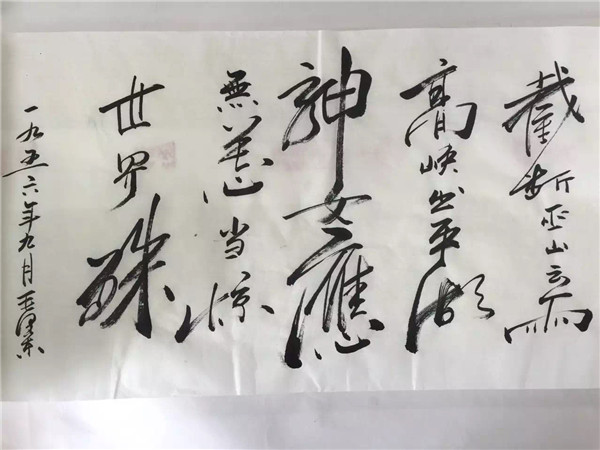 截断巫山云雨
高峡出平湖
神女應
無恙当惊
世界殊
一九五六年九月